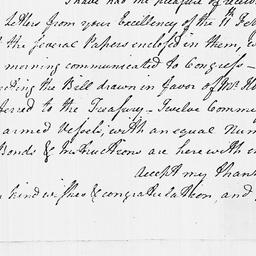 I have had the pleasure of
letters from your Excellency of the 11th Feb
the several Papers enclosed in them,
morning communicated to Congress —
the Bill drawn in favor of Mr.
ferred to the Treasury — Twelve Comm
armed Vessels, with an equal Num
Bonds & Instructions are herewith en
Accept my thank
kind wishes & congratulation, and